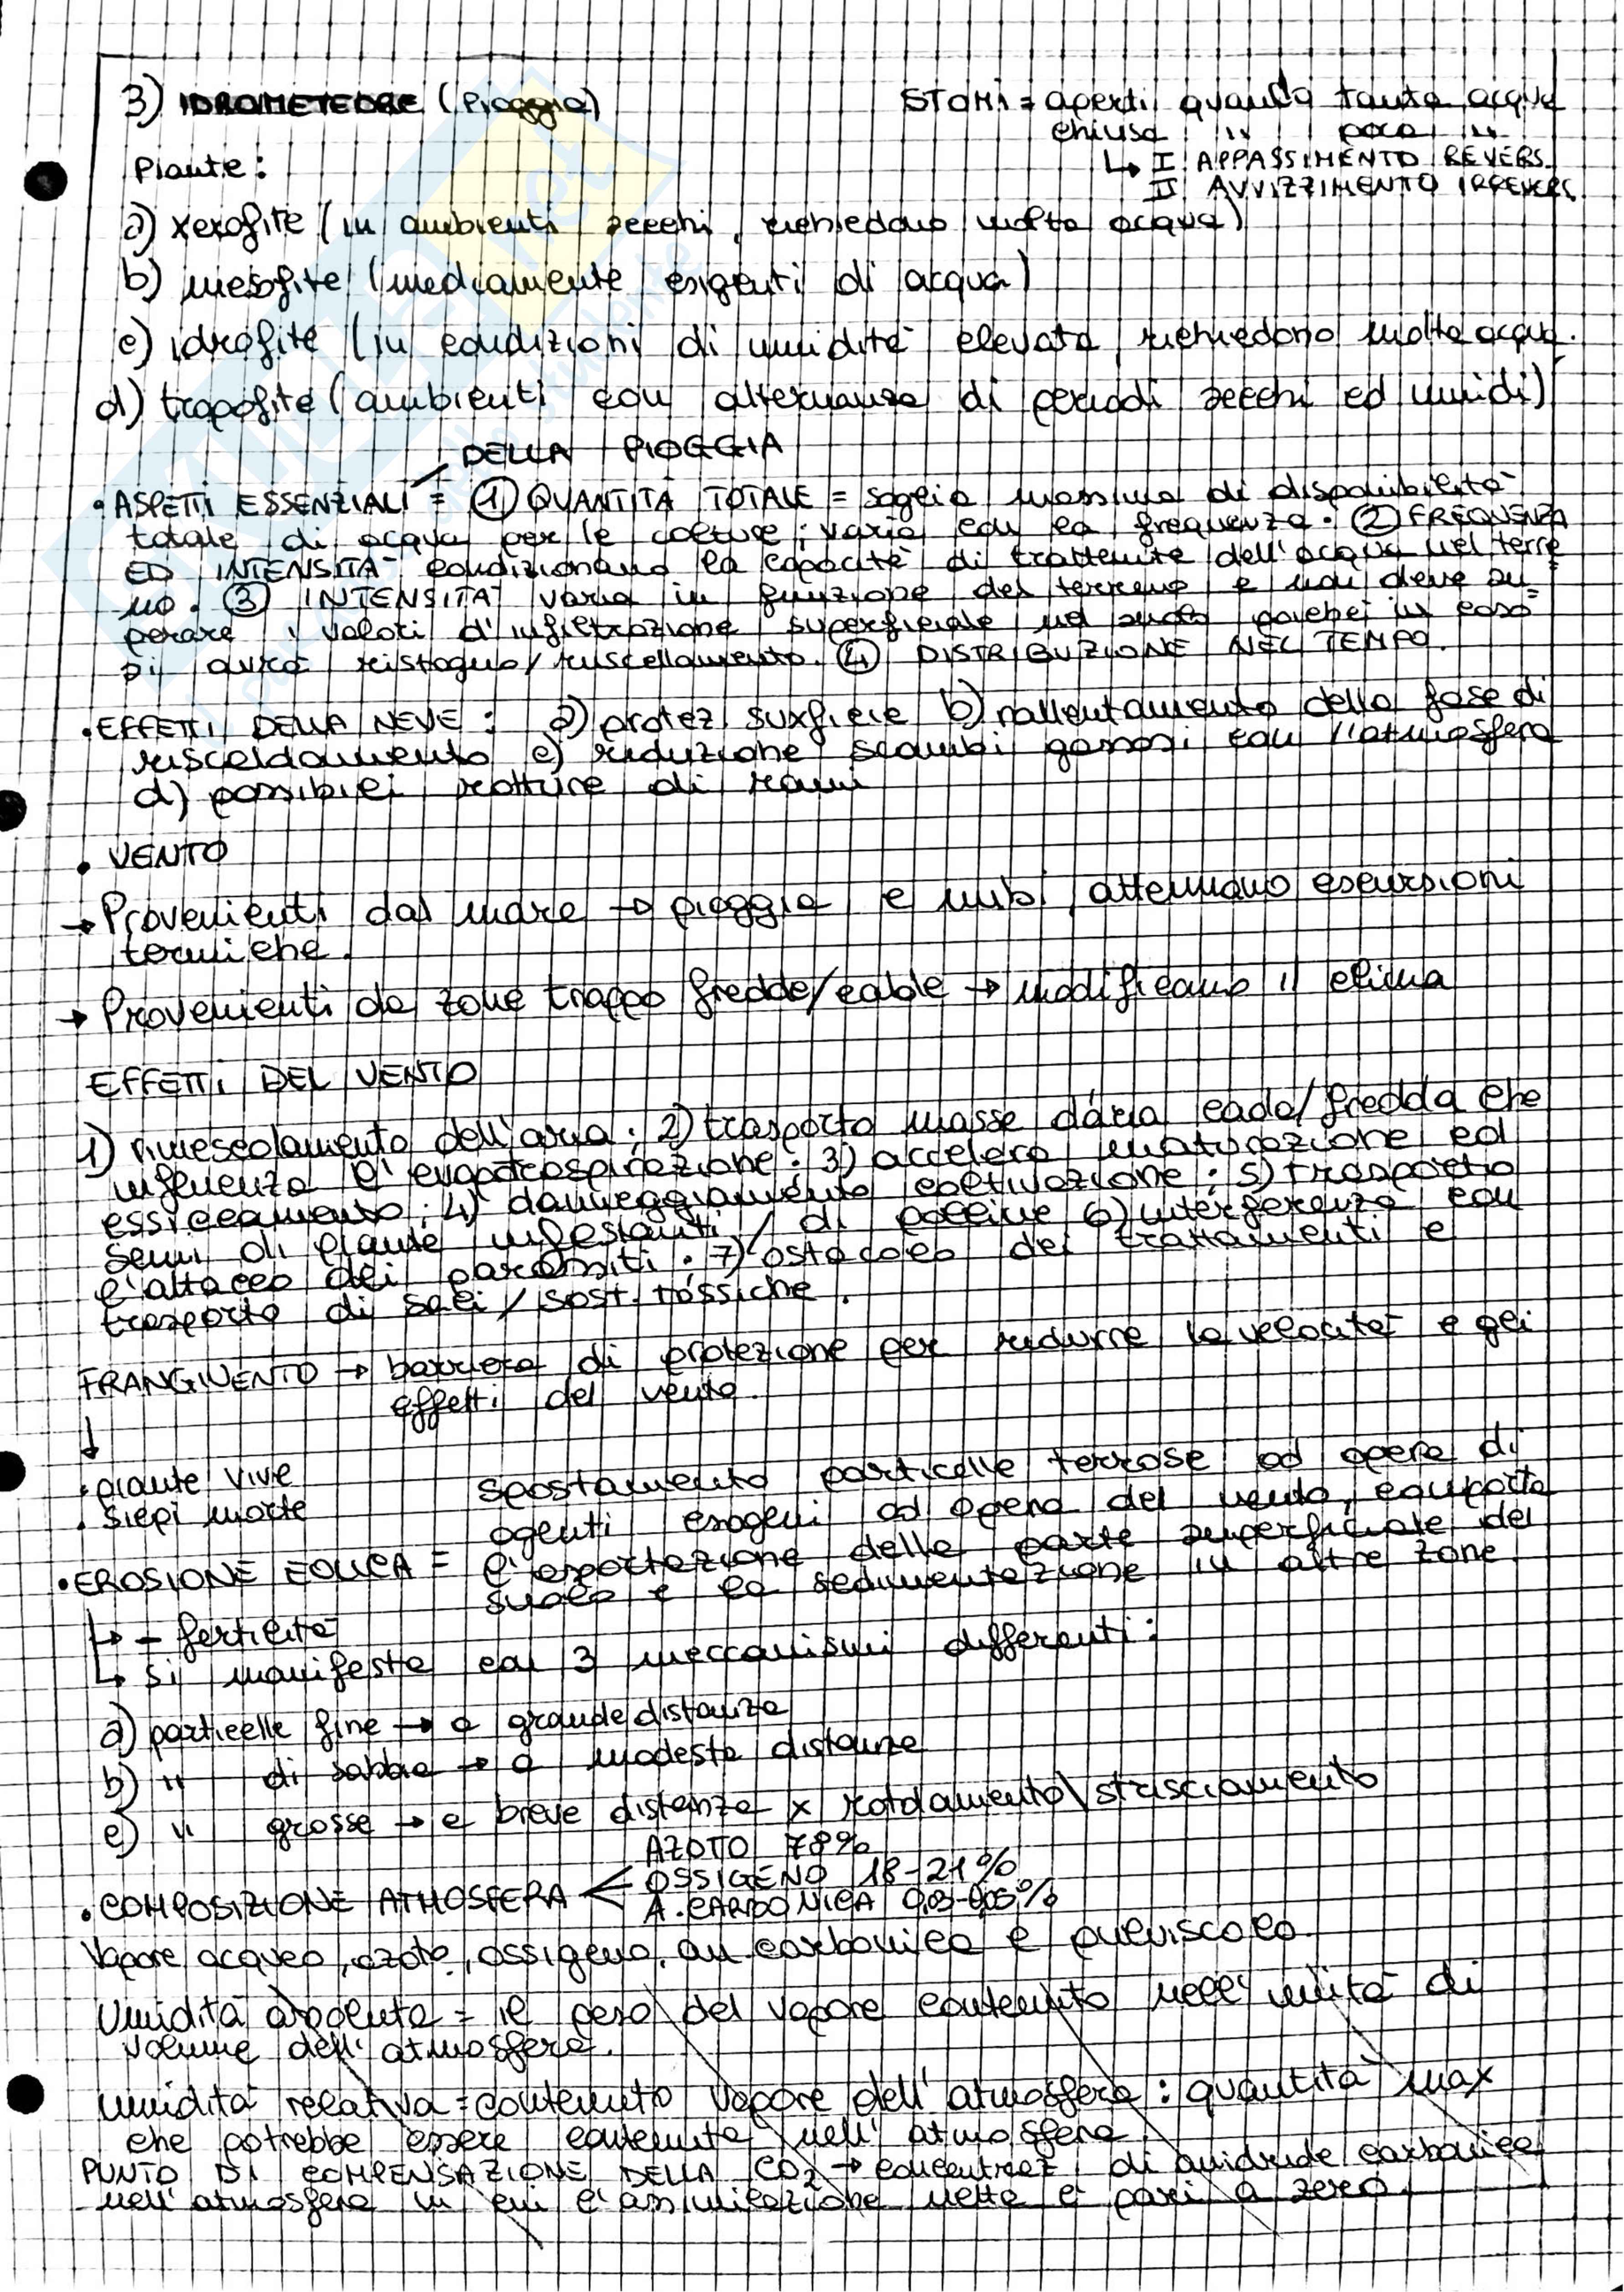 3) IDROMETEORE (Pioggia)
STOMI = aperti quando tanta acqua
chiusa " poca "
↳ I APPASSIMENTO REVERS.
II AVVIZZIMENTO IRREVERS.
Piante:
a) xerofite (in ambienti secchi, richiedono molta acqua)
b) mesofite (mediamente esigenti di acqua)
c) idrofite (in condizioni di umidità elevata, richiedono molta acqua.
d) tropofite (ambienti con alternanza di periodi secchi ed umidi)
DELLA PIOGGIA
• ASPETTI ESSENZIALI = ① QUANTITÀ TOTALE = soglia massima di disponibilità
totale di acqua per le colture; varia con la frequenza. ② FREQUENZA
ED INTENSITÀ condizionano la capacità di trattenute dell'acqua nel terre
no. ③ INTENSITÀ varia in funzione del terreno e non deve su=
perare i valori d'infiltrazione superficiale nel suolo poiché in caso
si avrà ristagno/ruscellamento. ④ DISTRIBUZIONE NEL TEMPO.
• EFFETTI DELLA NEVE: a) protez. suxficie b) rallentamento della fase di
riscaldamento c) riduzione scambi gassosi con l'atmosfera
d) possibili rotture di rami
• VENTO
→ Provenienti dal mare → pioggia e nubi, attenuano escursioni
termiche.
→ Provenienti da zone troppo fredde/calde → modificano il clima
EFFETTI DEL VENTO
1) rimescolamento dell'aria; 2) trasporto masse d'aria calda/fredda che
influenza l'evapotraspirazione; 3) accelera maturazione ed
essiccamento; 4) danneggiamento coltivazione; 5) trasporto
semi di piante infestanti / di polline 6) interferenza con
l'attacco dei parassiti; 7) ostacolo dei trattamenti e
trasporto di sali / sost. tossiche.
FRANGIVENTO → barriera di protezione per ridurre la velocità e gli
effetti del vento.
↓
• piante vive
• siepi morte
spostamento particelle terrose ad opera di
agenti esogeni ad opera del vento, comporta
• EROSIONE EOLICA = l'esportazione della parte superficiale del
suolo e la sedimentazione in altre zone.
↳ - fertilità
↳ si manifesta con 3 meccanismi differenti:
a) particelle fine → a grande distanza
b) " di sabbia → a modesta distanza
c) " grosse → a breve distanza x rotolamento\strisciamento
AZOTO 78%
• COMPOSIZIONE ATMOSFERA < OSSIGENO 18-21%
A. CARBONICA 0,03-0,05%
Vapore acqueo, azoto, ossigeno, an carbonica e pulviscolo.
Umidità assoluta = il peso del vapore contenuto nell'unità di
volume dell'atmosfera.
Umidità relativa = contenuto vapore dell'atmosfera : quantità max
che potrebbe essere contenuta nell'atmosfera.
PUNTO DI COMPENSAZIONE DELLA CO2 → concentraz. di anidride carbonica
nell'atmosfera in cui l'assimilazione netta è pari a zero.